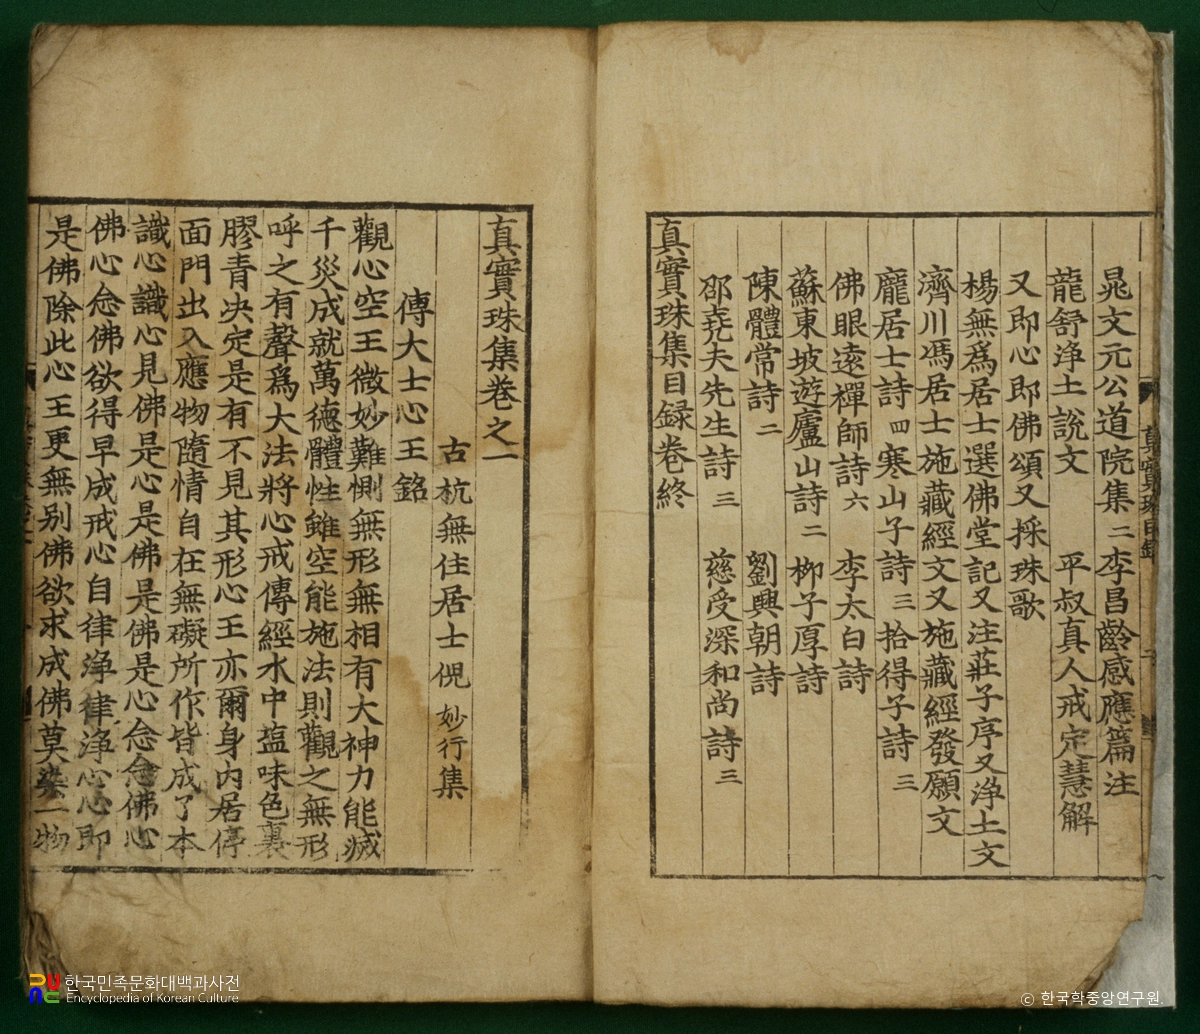 晁文元公道院集二 李昌齡感應篇注
龍舒淨土說文 平叔真人戒定慧解
又即心即佛頌又採珠歌
楊無爲居士選佛堂記又注莊子序又淨土文
濟川馮居士施藏經文又施藏經發願文
龐居士詩四 寒山子詩三 拾得子詩三
佛眼遠禪師詩六 李太白詩
蘇東坡遊廬山詩二 柳子厚詩
陳體常詩二 劉興朝詩
邵堯夫先生詩三 慈受深和尚詩三
真實珠集目録卷終
真實珠集卷之一
古杭無住居士俔 妙行集
傅大士心王銘
觀心空王微妙難惻無形無相有大神力能滅
千災成就萬德體性雖空能施法則觀之無形
呼之有聲爲大法將心戒傳經水中塩味色裏
膠青决定是有不見其形心王亦爾身内居停
面門出入應物隨情自在無礙所作皆成了本
識心識心見佛是心是佛是佛是心念念佛心
佛心念佛欲得早成戒心自律淨律淨心心即
是佛除此心王更無别佛欲求成佛莫染一物
한국민족문화대백과사전
Encyclopedia of Korean Culture
© 한국학중앙연구원.